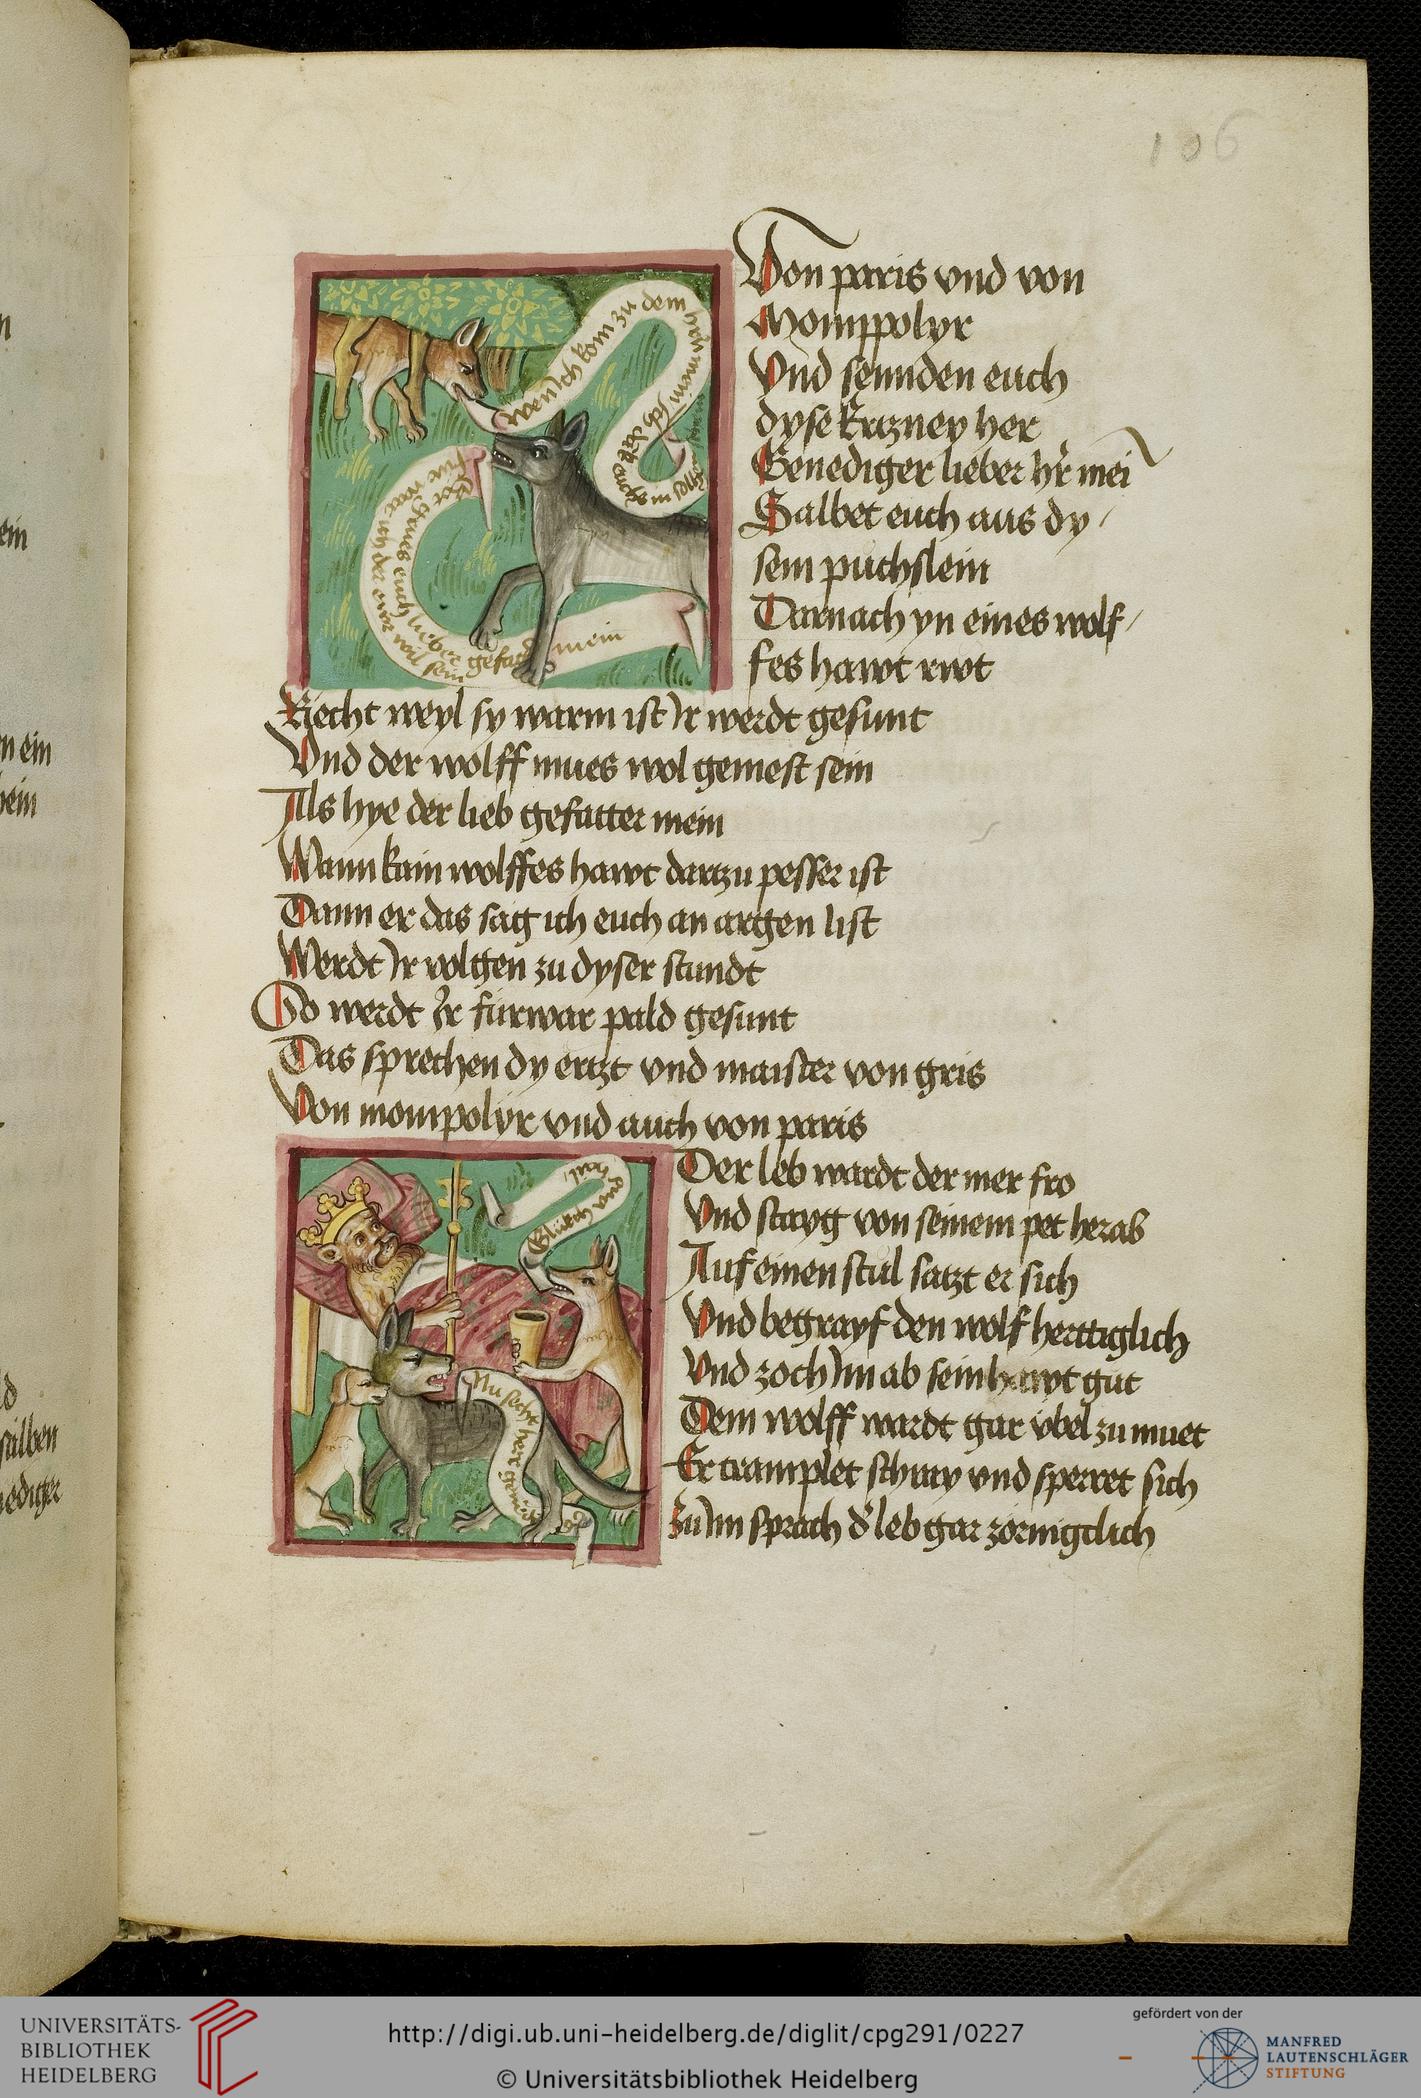 106
Von paris vnd von
Mompolyr
Vnd sennden euch
dyse Ertzney her
Genediger lieber hr mei
Salbet euch aus dy
sem puchslein
Darnach yn eines wolf
fes hawt rwt
Recht weyl sy warm ist Ir werdt gesunt
Vnd der wolff mues wol gemest sein
Als hye der lieb gefatter mein
Wann kain wolffes hawt dartzu pesser ist
Dann er das sag ich euch an argen list
Werdt Ir volgen zu dyser stundt
So werdt Ir fürwar pald gesunt
Das sprechen dy ertzt vnd maister von gris
Von mompolyr vnd auch von paris
ich kom zu dem hrn mein
euch lieber gefatt mein
der ewr wil sein
Der leb wardt der mer fro
Vnd stayg von seinem pet herab
Auf einen stul satzt er sich
Vnd begrayf den wolf herttiglich
Vnd zoch Im ab sein hawt gut
Dem wolff wardt gar vbel zu muet
Er tramplet schray vnd sperret sich
Zu Im sprach d leb gar zornigclich
Nu secht here
ein
ein
salben
nediger
UNIVERSITÄTS-
BIBLIOTHEK
HEIDELBERG
http://digi.ub.uni-heidelberg.de/diglit/cpg291/0227
© Universitätsbibliothek Heidelberg
gefördert von der
MANFRED
LAUTENSCHLÄGER
STIFTUNG